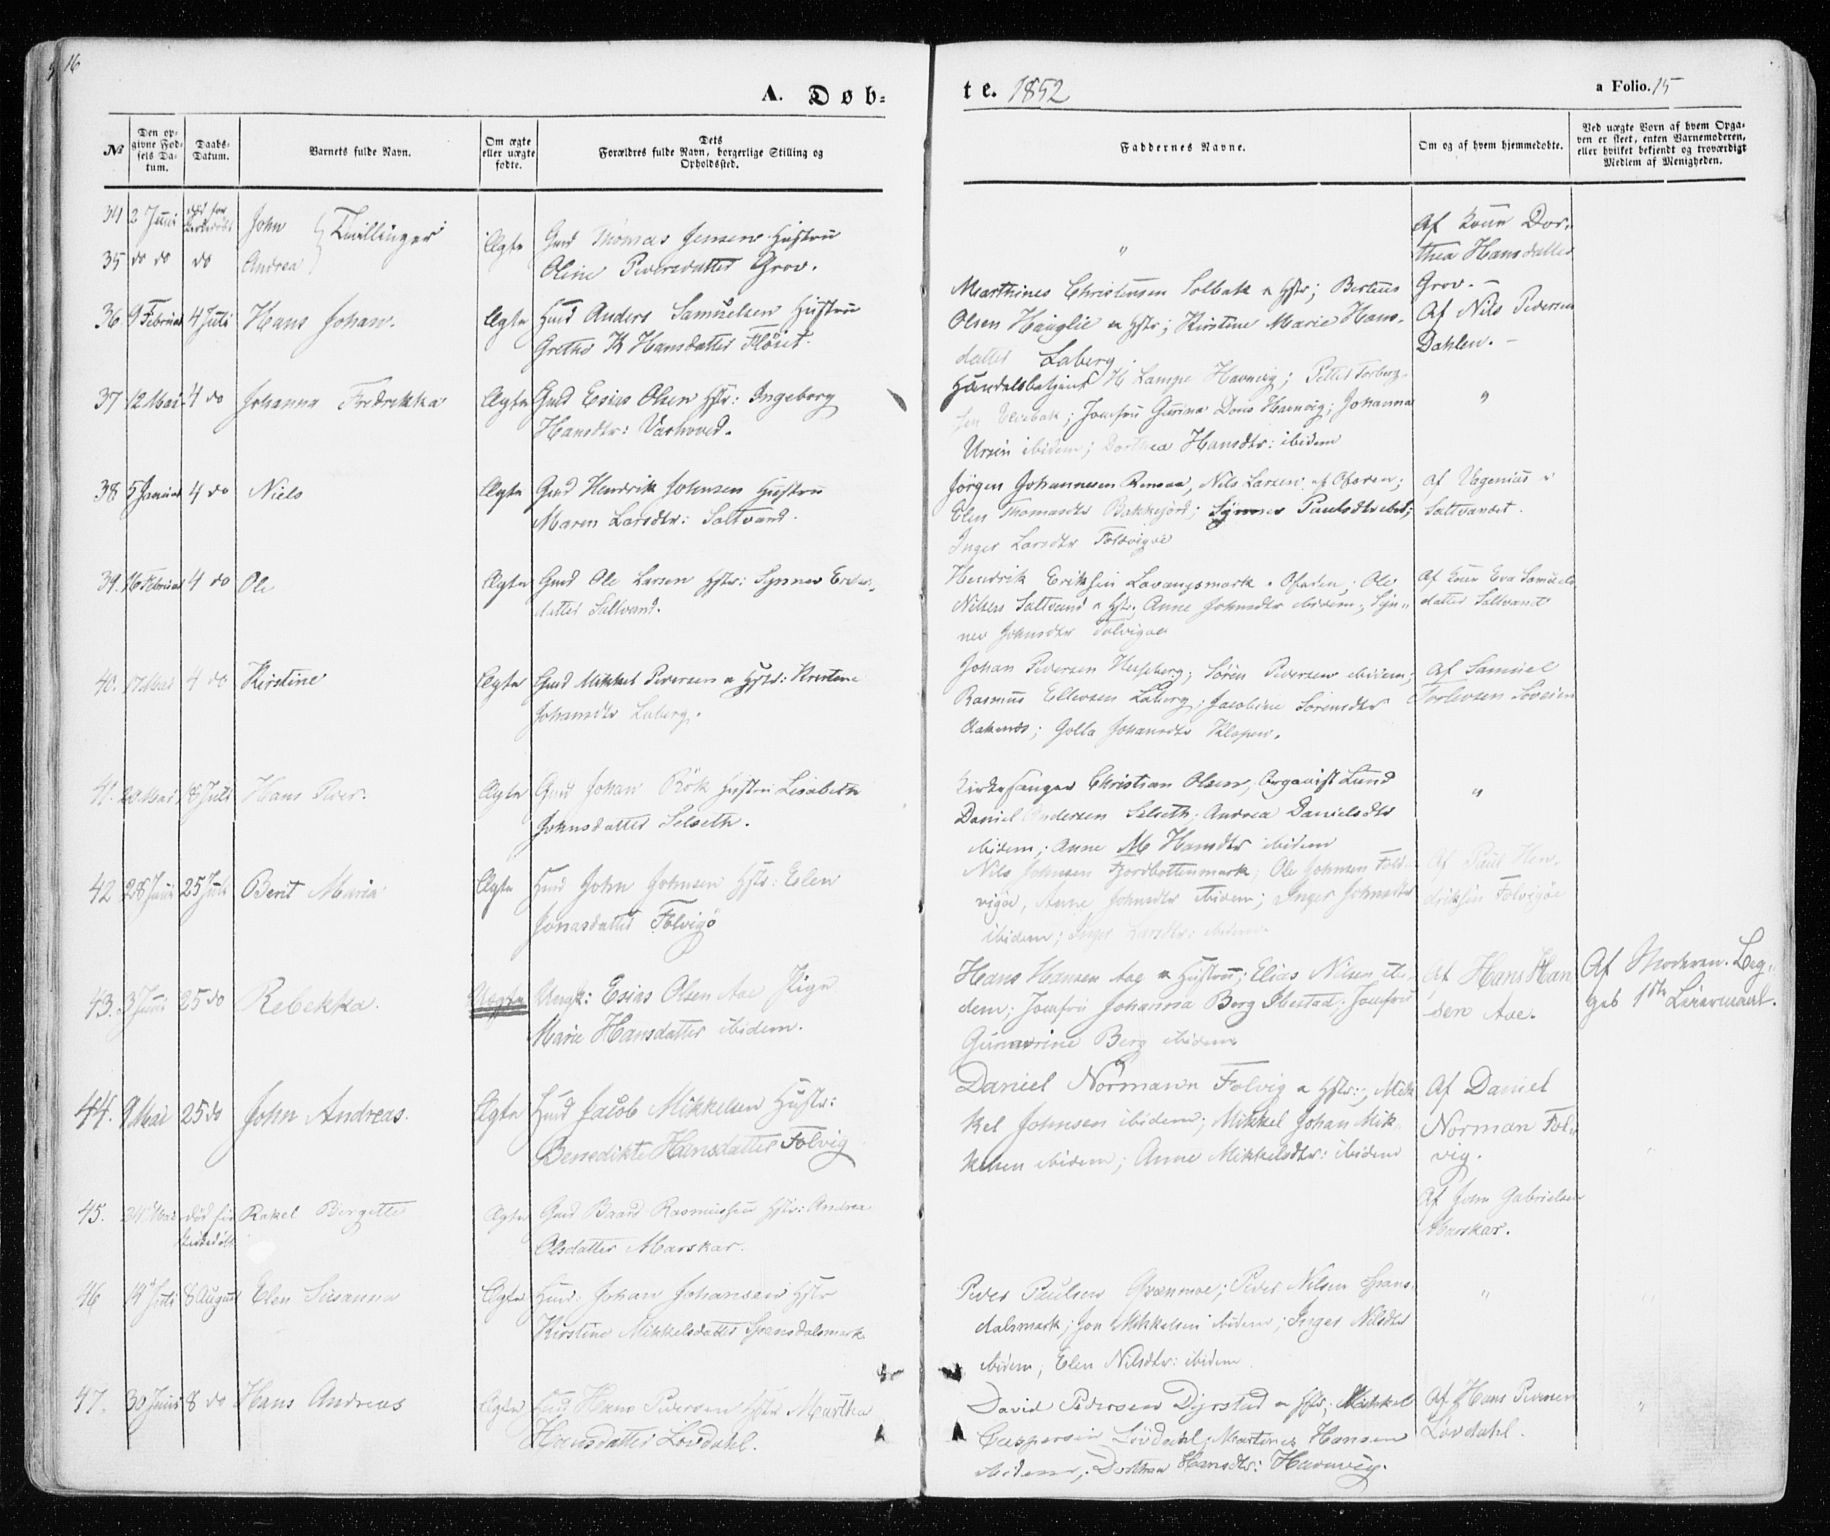 16
A. Døb-
te. 1852
a Folio. 15
No
Den opgivne Fødsels Datum.
Daabs-Datum.
Barnets fulde Navn.
Om ægte eller uægte fødte.
Dets Forældres fulde Navn, borgerlige Stilling og Opholdssted.
Faddernes Navne.
Om og af hvem hjemmedøbt.
Ved uægte Børn af hvem Opgaven er skeet, enten Barnemoderen, eller hvilket bekjendt og troværdigt Medlem af Menigheden.
34 2 Juni død før John } Tvillinger Ægte Gmd Thomas Jensen Hustru " Af Kone Dor-
35 do do do Andrea Oline Pedersdatter Grov. thea Hansdatter
Grov. –
36 9 Februar 4 Juli Hans Johan. Ægte Hmd Anders Samuelsen Hustru
Grethe K Hansdatter Fløiet.
Marthines Christensen Solbak & Hstr; Berteus
Olsen Hauglie & Hstr; Kirstine Marie Hans-
datter Laberg.
Af Nils Pedersen
Dahlen. –
37 12 Mai 4 do Johanna Fredrikka Ægte Gmd Esias Olsen Hstr: Ingeborg
Hansdtr: Varhoved.
Handelsbetjent H Lampe Havnvig; Petter Torberg-
sen Elvebak; Jomfru Gurina Dons Havnvig; Johanna
Ursin ibidem; Dorthea Hansdtr: ibidem
"
38 5 Januar 4 do Niels Ægte Gmd Hendrik Johnsen Hustru
Maren Larsdtr: Saltvand.
Jørgen Johannesen Renaa, Nils Larsen af Ofoten;
Elen Thomasdtr Bakkejord; Synnev Paulsdtr ibid;
Inger Larsdtr Folvigøe
Af Vogenius i
Saltvandet.
39. 16 Februar 4 do Ole Ægte Gmd Ole Larsen Hstr: Synnev Eriks-
datter Saltvand.
Hendrik Eriksen Lavangsmark i Ofoden; Ole
Nilsen Saltvand & Hstr; Anne Johnsdtr ibidem; Syn-
nev Johnsdtr Folvigøe
Af Kone Eva Samuels-
datter Saltvand
40. 17 Mai 4 do Kirstine Ægte Gmd Mikkel Pedersen & Hstr: Kirstine
Johansdtr Laberg.
Johan Pedersen Hesseberg; Sören Pedersen ibidem;
Rasmus Ellevsen Laberg; Jacobine Sörensdtr
Aakenes; Golla Johansdtr Kloven.
Af Samuel
Torlevsen Soveien
41. 20 Mai 18 Juli Hans Peder. Ægte Gmd Johan Rök Hustru Lisabeth
Johnsdatter Selseth.
Kirkesanger Christian Olsen, Organist Lund
Daniel Andersen Selseth; Andrea Danielsdtr
ibidem; Anne M Hansdtr ibidem
"
42 28 Juni 25 Juli Berit Maria Ægte Hmd John Johnsen Hstr: Elen
Jonasdatter Folvigö
Nils Johnsen Fjordbottenmark; Ole Johnsen Fol-
vigöe, Anne Johnsdtr ibidem; Inger Johnsdtr
ibidem; Inger Larsdtr: ibidem.
Af Paul Hen-
driksen Folvigöe
43. 3 Juni 25 do Rebekka. Uægte Ungk: Esias Olsen Aae Pige
Marie Hansdatter ibidem.
Hans Hansen Aae & Hustru; Elias Nilsen ibi-
dem; Jomfru Johanna Berg Ibestad; Jomfru
Gunnerine Berg ibidem
Af Hans Han
sen Aae.
Af Moderen. Beg-
ges 1ste Leiermaal.
44. 9 Mai 25 do John Andreas. Ægte Hmd Jacob Mikkelsen Hustr:
Benedikte Hansdatter Folvig
Daniel Normann Folvig & Hstr:; Mik-
kel Johnsen ibidem; Mikkel Johan Mik-
kelsen ibidem; Anne Mikkelsdtr: ibidem
Af Daniel
Norman Fol-
vig.
45. 24 Mai død før Rakel Birgitte Ægte Gmd Baard Rasmussen Hstr: Andrea
Olsdatter Marskar.
Af John Gabrielsen
Marskar.
46 14 Juli 8 August Elen Susanna Ægte Hmd: Johan Johansen Hstr
Kirstine Mikkelsdatter Spansdalsmark
Peder Paulsen Qvænmoe; Peder Nilsen Spans-
dalsmark; Jon Mikkelsen ibidem; Inger Nilsdtr
ibidem; Elen Nilsdtr: ibidem
"
47. 30 Juni 8 do Hans Andreas Ægte Gmd Hans Pedersen Hstr Martha
Hansdatter Lövdahl.
David Pedersen Dyrstad & Hstr; Mikkel
Caspersen Lövdahl; Martines Hansen
ibidem; Dorthea Hansdtr: Havnvig.
Af Hans Pedersen
Lövdahl.
"